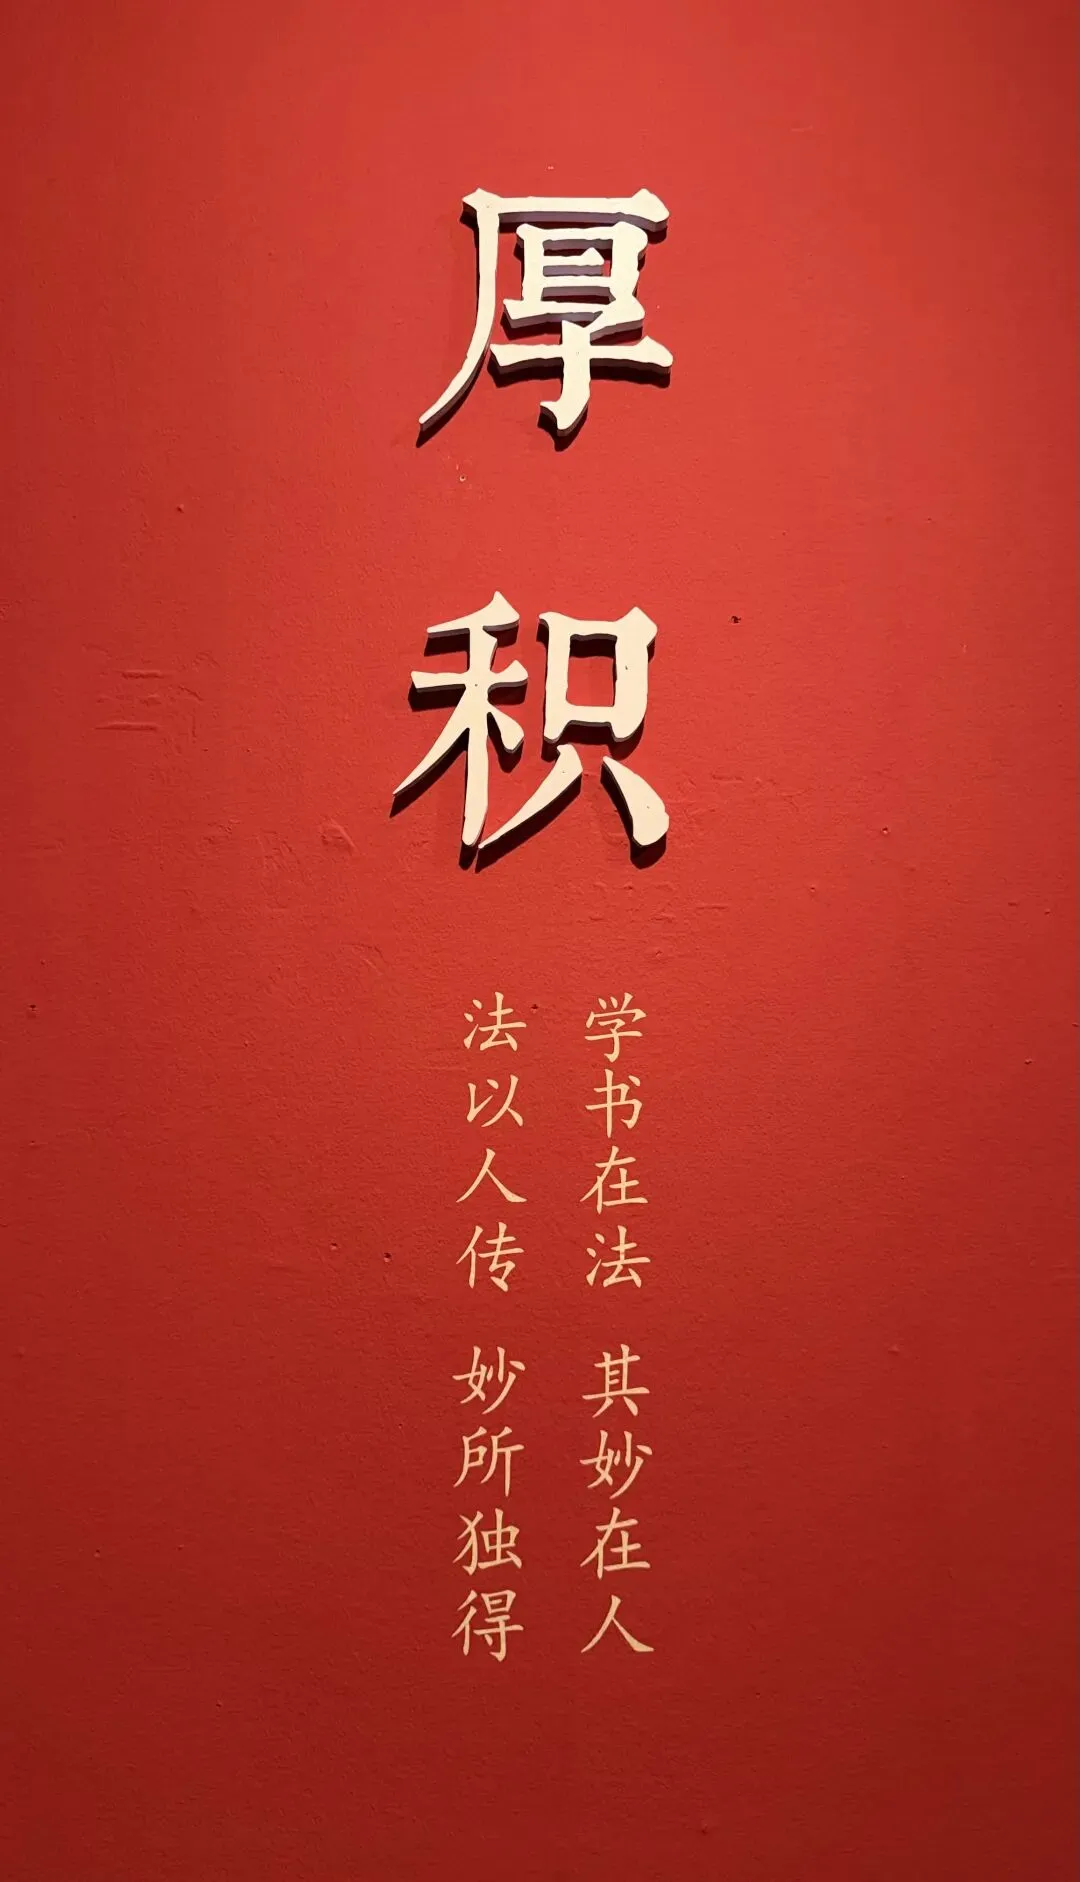 厚积
学书在法 其妙在人
法以人传 妙所独得